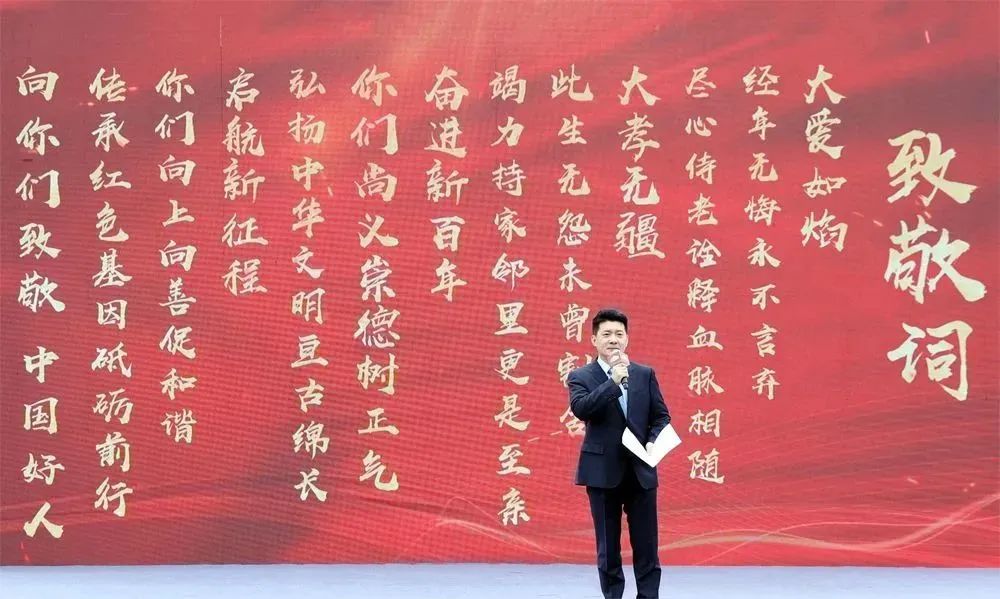 致敬词
大爱如焰
经年无悔永不言弃
尽心侍老诠释血脉相随
大孝无疆
此生无怨未曾
竭力持家邻里更是至亲
奋进新百年
你们尚义崇德树正气
弘扬中华文明亘古绵长
启航新征程
你们向上向善促和谐
传承红色基因砥砺前行
向你们致敬 中国好人